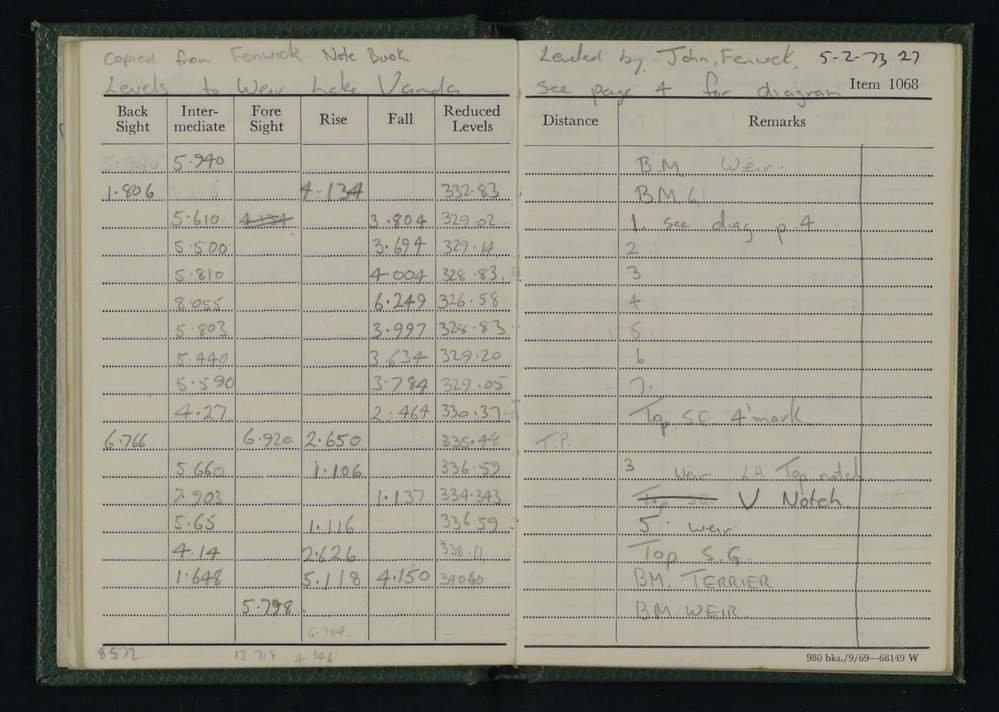 Copied from Fenwick Note Book
Levels to Weir Lake Vanda
Back Sight Inter-mediate Fore Sight Rise Fall Reduced Levels
5.940 5.940
1.806 4.134 332.83
5.610 4.134 3.804 329.02
5.500 3.694 329.14
5.810 4.004 328.83
8.055 6.249 326.58
5.803 3.997 328.83
5.440 3.634 329.20
5.590 3.784 329.05
4.27 2.464 330.37
6.766 6.920 2.650 335.48
5.660 1.106 336.59
7.903 1.137 334.343
5.65 1.116 336.59
4.14 2.626 338.11
1.648 5.118 4.150 340.60
5.798
6.784.
8572 12.718 4.146
Leveled by John Fenwick 5-2-73 27
See page 4 for diagram Item 1068
Distance Remarks
B.M Weir.
B.M.G1
1. see diag p. 4
2
3
4
5
6
7.
Top S.G. 4' mark
T.P.
3 weir LH Top notch
V Notch
5. weir
Top S.G.
BM. TERRIER
B.M. WEIR.
980 bks./9/69—68149 W